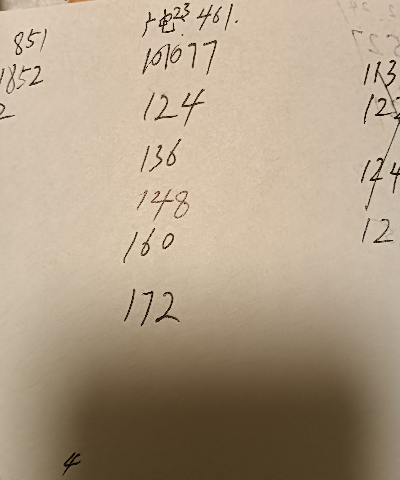 851
1852
2
广电23.461.
101077
124
136
148
160
172
113
122
124
12
4